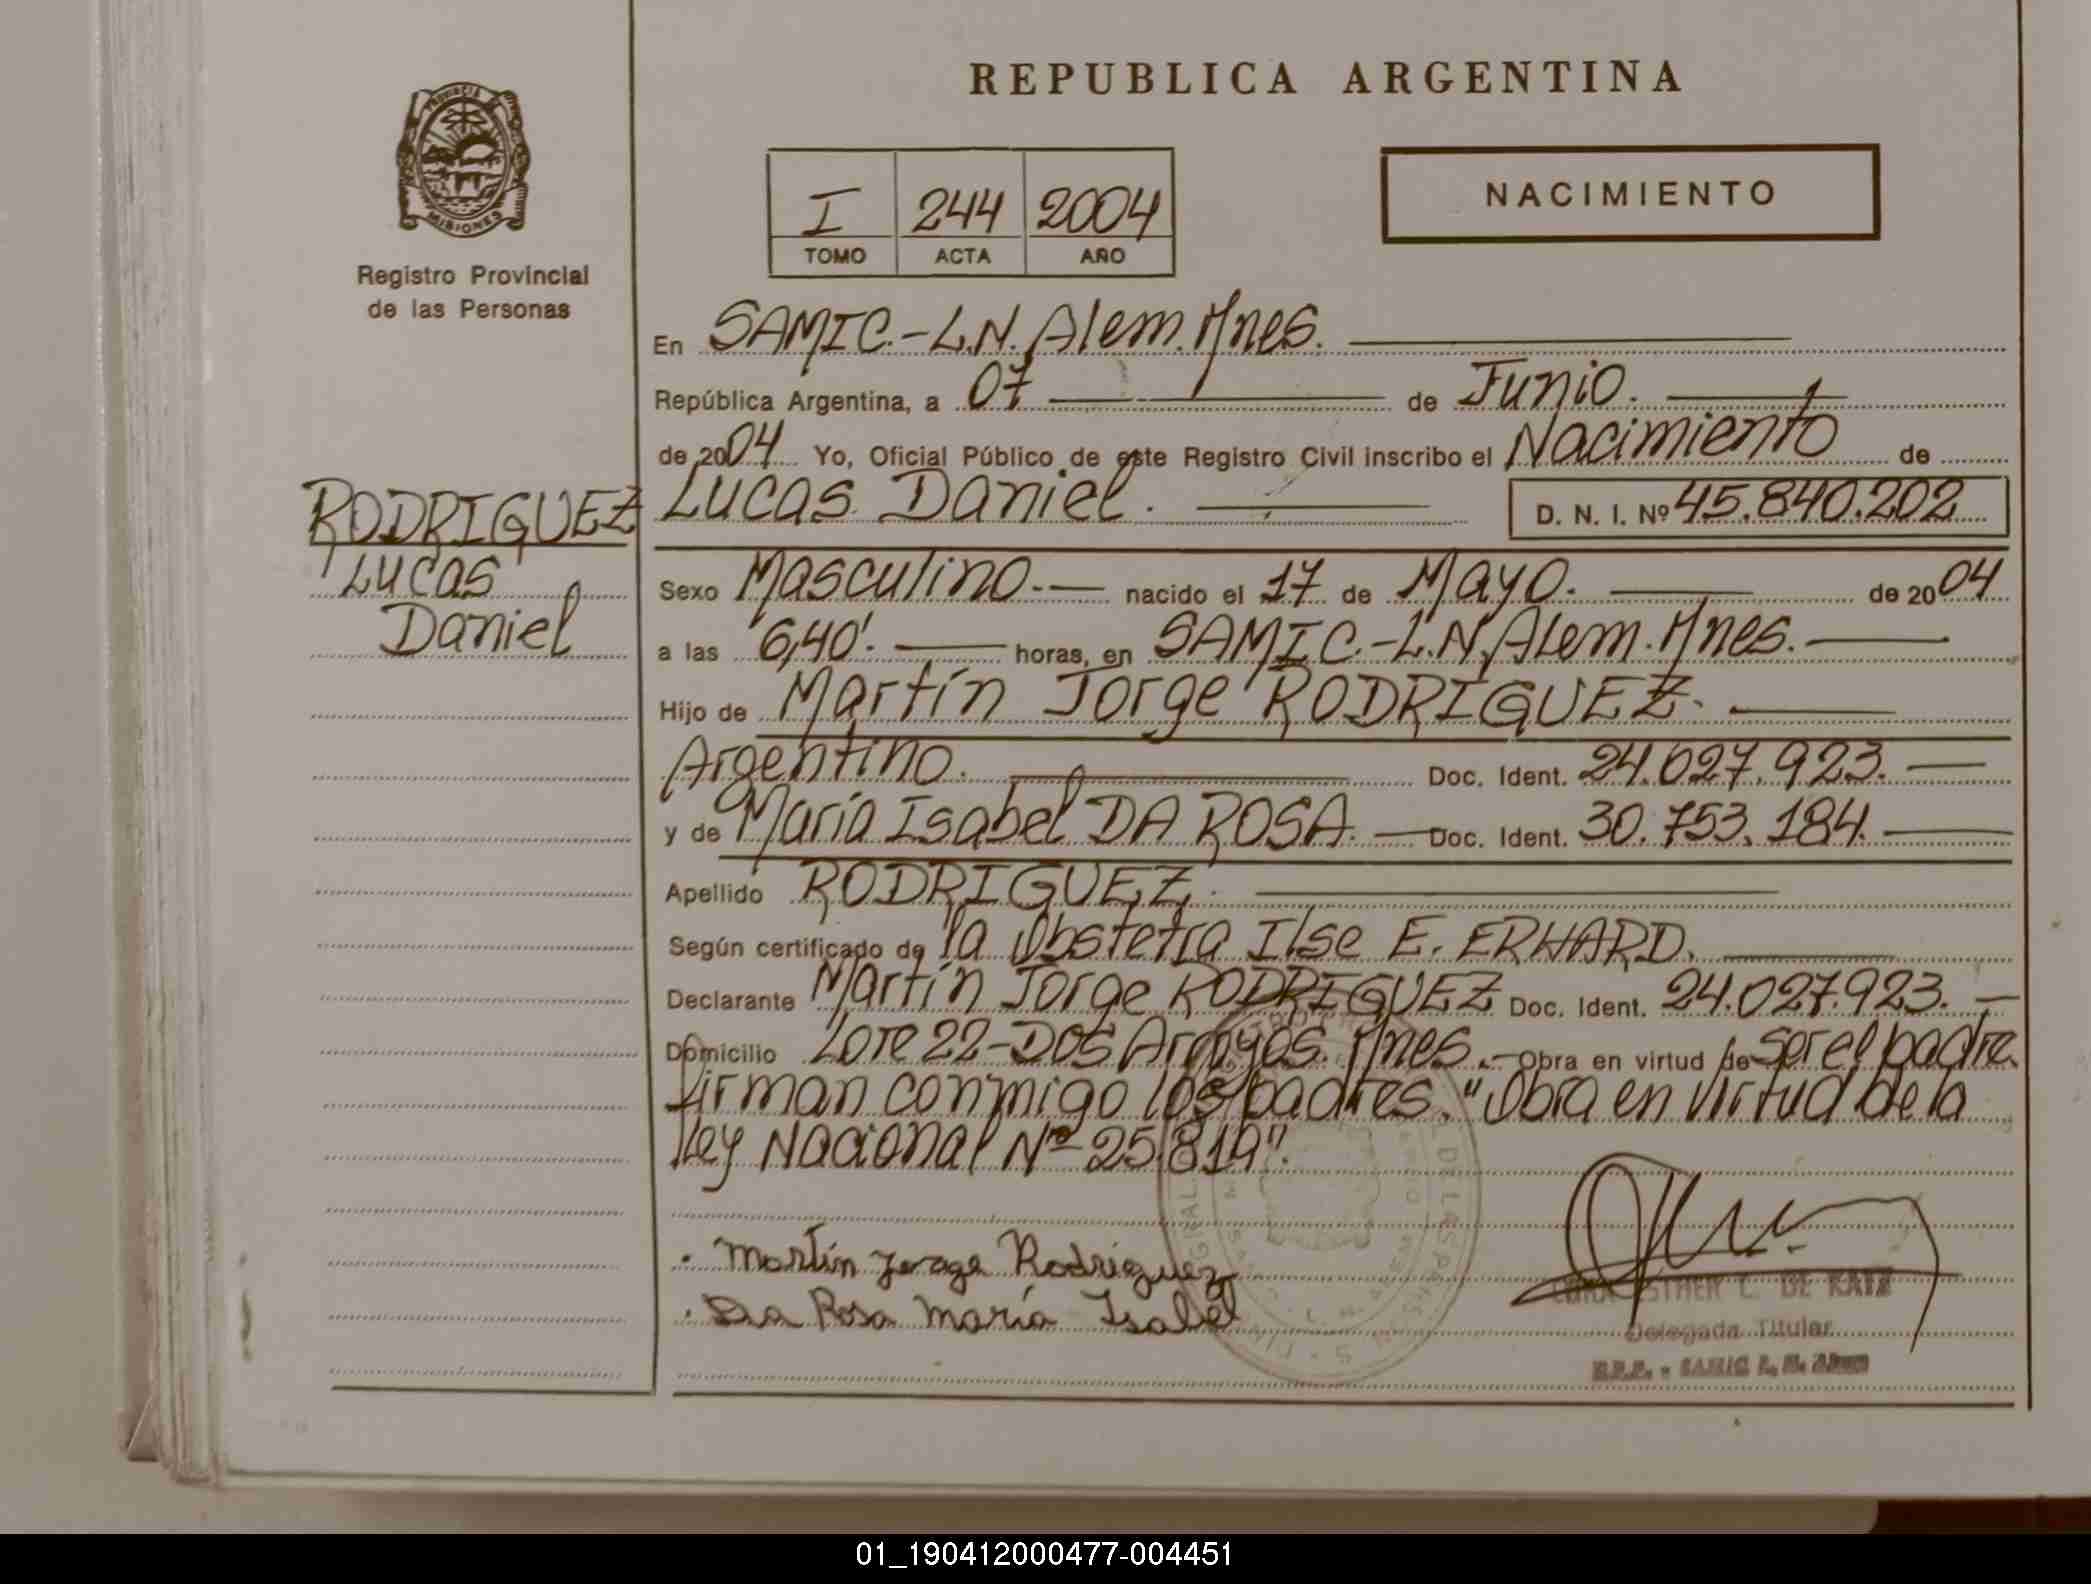 REPUBLICA ARGENTINA
PROVINCIA DE
MISIONES
Registro Provincial
de las Personas
NACIMIENTO
I 244 2004
TOMO ACTA AÑO
En SAMIC.-L.N. Alem. Mnes.
República Argentina, a 07 de Junio.
de 2004 Yo, Oficial Público de este Registro Civil inscribo el Nacimiento de
RODRIGUEZ
Lucas
Daniel
Lucas Daniel. D. N. I. Nº 45.840.202
Sexo Masculino.- nacido el 17 de Mayo. de 2004
a las 6,40'. horas, en SAMIC.-L.N. Alem. Mnes.
Hijo de Martín Jorge RODRIGUEZ.
Argentino. Doc. Ident. 24.027.923.
y de María Isabel DA ROSA. Doc. Ident. 30.753.184.
Apellido RODRIGUEZ.
Según certificado de la Obstetra Ilse E. ERHARD.
Declarante Martín Jorge RODRIGUEZ Doc. Ident. 24.027.923.
Domicilio Lote 22-Dos Arroyos. Mnes. Obra en virtud de ser el padre.
Firman conmigo los padres. "Obra en virtud de la
Ley Nacional Nº 25.819".
. Martín Jorge Rodriguez
. Da Rosa María Isabel
ESTHER L. DE KATZ
Delegada Titular
R.P.P. - SAMIC L. N. Alem
01_190412000477-004451